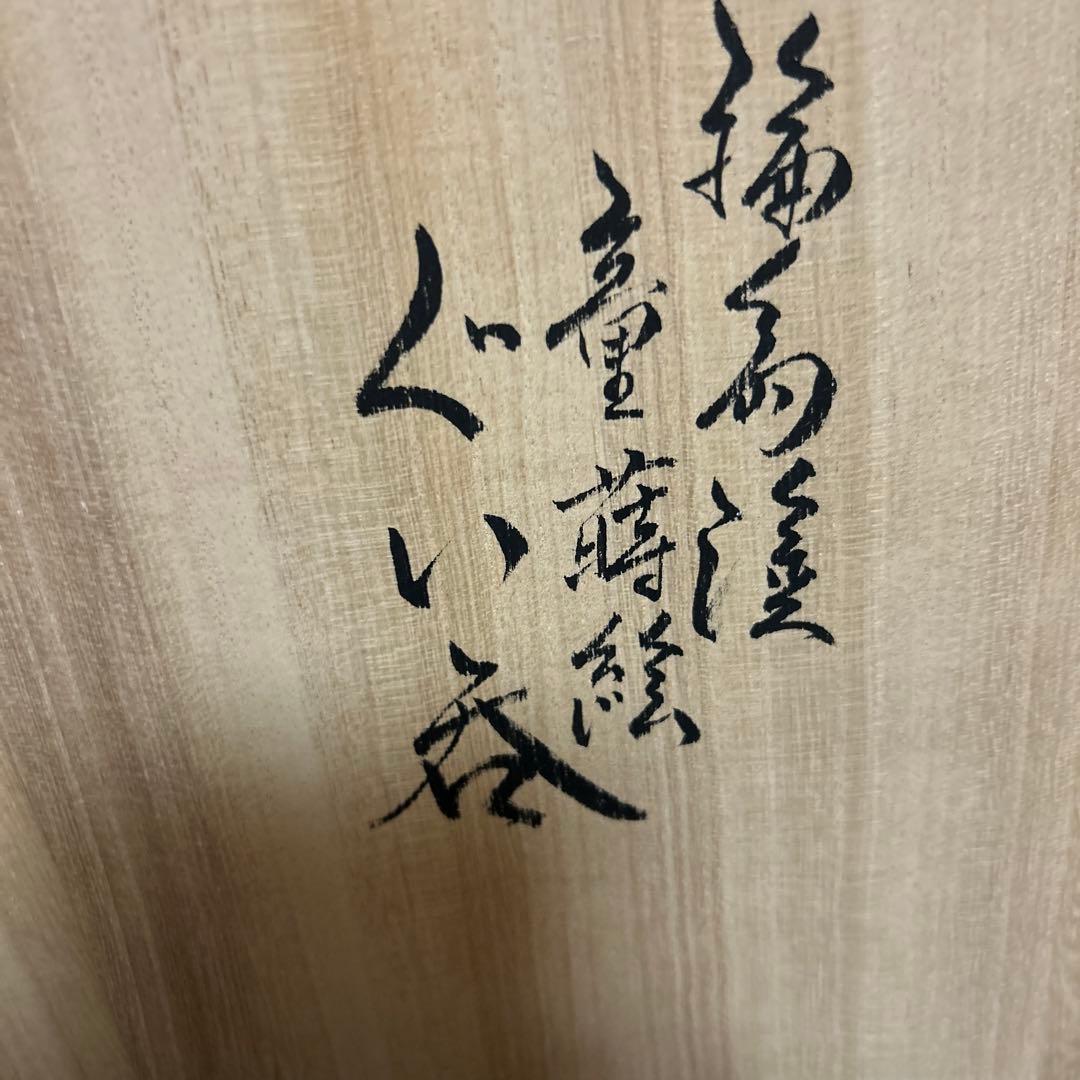 輪島塗
童蒔絵
ぐい呑